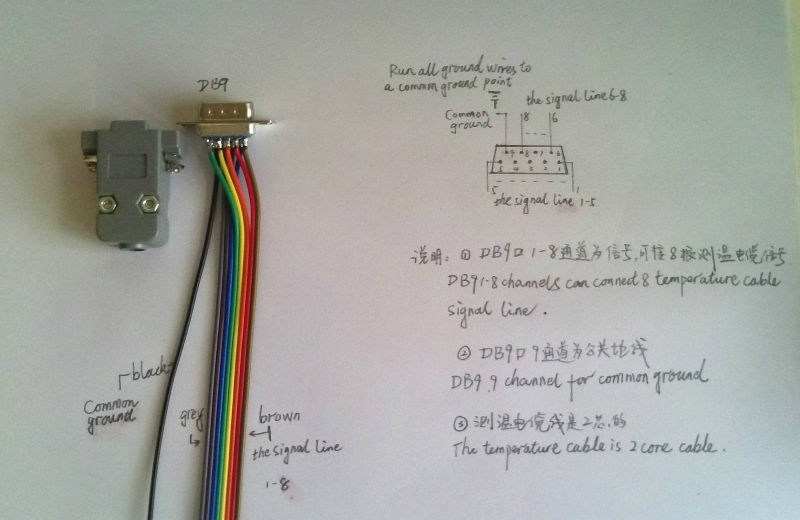 DB9
Run all ground wires to
a common ground point
the signal line 6-8
Common
ground
8
6
9 8 7 6
5 4 3 2 1
5
1
the signal line 1-5
说明: ① DB9口 1-8通道为信号,可接8根测温电缆信号
DB9 1-8 channels can connect 8 temperature cable
signal line.
② DB9口 9通道为公共地线
DB9 9 channel for common ground
③ 测温电缆线是2芯的
The temperature cable is 2 core cable.
black
Common
ground
grey
brown
the signal line
1-8